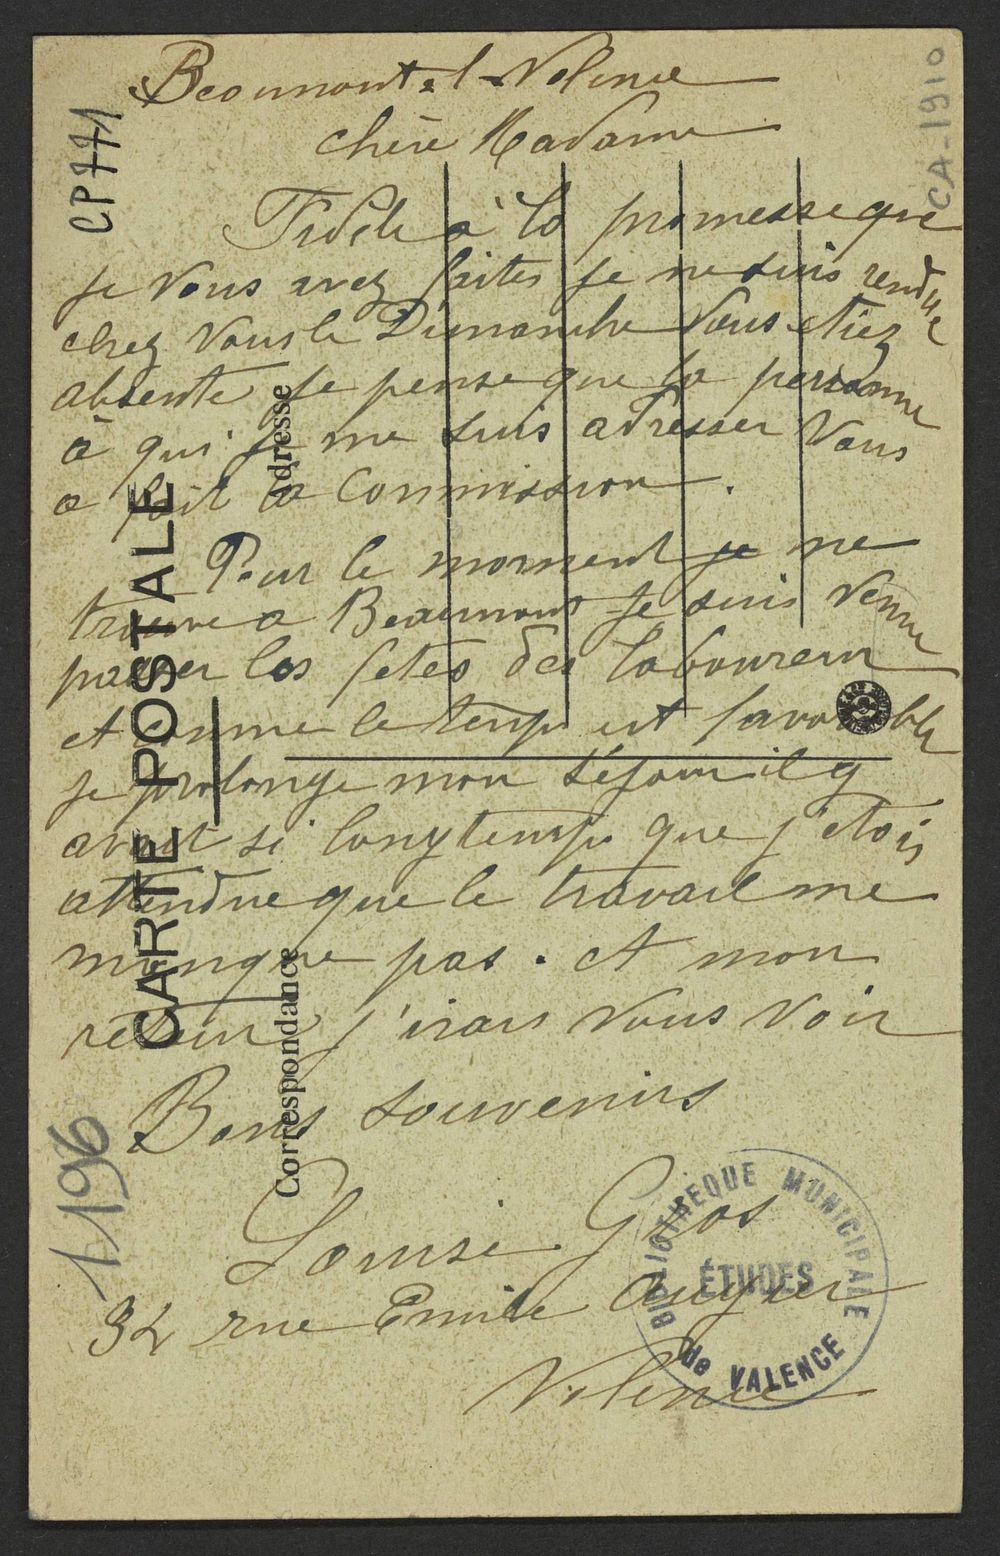 Beaumont-l-Valence
chère Madame
Fidele à la promesse que
je vous avez faites je me suis rendue
chez vous le Dimanche vous étiez
absente je pense que la personne
à qui je me suis adresser vous
a fait la Commission.
Pour le moment je me
trouve a Beaumont je suis venue
passer les fetes des laboureur
et comme le temps est favorable
je prolonge mon séjour il y
avait si longtemps que j'etais
attendue que le travail me
manque pas. et mon
retour j'irais vous voir
Bons souvenirs
Louise Gros
34 rue Emile Augier
Valence
CARTE POSTALE
Correspondance
Adresse
CP771
CA-1910
1196
BIBLIOTHÈQUE MUNICIPALE
ÉTUDES
de VALENCE